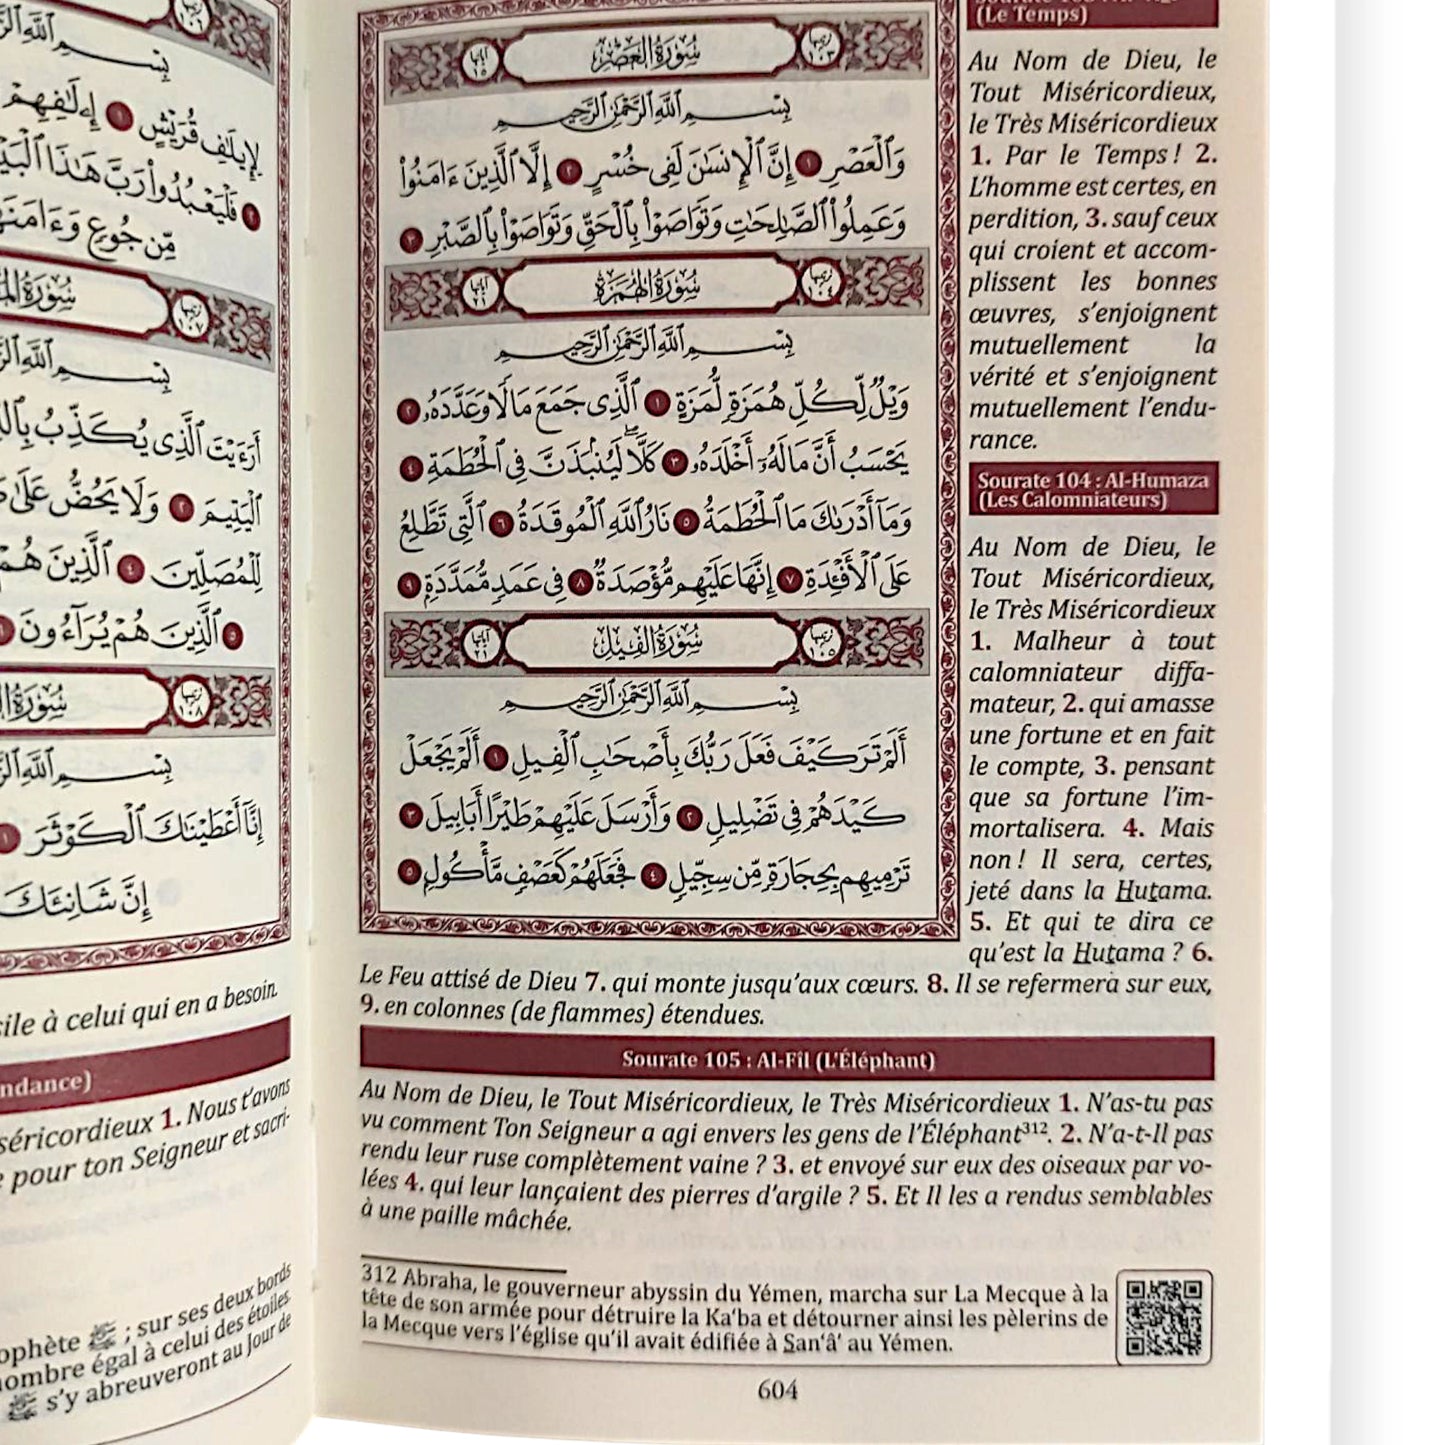 سُورَةُ العَصْرِ
بِسْمِ ٱللَّهِ ٱلرَّحْمَٰنِ ٱلرَّحِيمِ
وَٱلْعَصْرِ ١ إِنَّ ٱلْإِنسَٰنَ لَفِى خُسْرٍ ٢ إِلَّا ٱلَّذِينَ ءَامَنُوا۟
وَعَمِلُوا۟ ٱلصَّٰلِحَٰتِ وَتَوَاصَوْا۟ بِٱلْحَقِّ وَتَوَاصَوْا۟ بِٱلصَّبْرِ ٣
سُورَةُ الهُمَزَةِ
بِسْمِ ٱللَّهِ ٱلرَّحْمَٰنِ ٱلرَّحِيمِ
وَيْلٌ لِّكُلِّ هُمَزَةٍ لُّمَزَةٍ ١ ٱلَّذِى جَمَعَ مَالًا وَعَدَّدَهُۥ ٢
يَحْسَبُ أَنَّ مَالَهُۥٓ أَخْلَدَهُۥ ٣ كَلَّا ۖ لَيُنۢبَذَنَّ فِى ٱلْحُطَمَةِ ٤
وَمَآ أَدْرَىٰكَ مَا ٱلْحُطَمَةُ ٥ نَارُ ٱللَّهِ ٱلْمُوقَدَةُ ٦ ٱلَّتِى تَطَّلِعُ
عَلَى ٱلْأَفْـِٔدَةِ ٧ إِنَّهَا عَلَيْهِم مُّؤْصَدَةٌ ٨ فِى عَمَدٍ مُّمَدَّدَةٍۭ ٩
سُورَةُ الفِيلِ
بِسْمِ ٱللَّهِ ٱلرَّحْمَٰنِ ٱلرَّحِيمِ
أَلَمْ تَرَ كَيْفَ فَعَلَ رَبُّكَ بِأَصْحَٰبِ ٱلْفِيلِ ١ أَلَمْ يَجْعَلْ
كَيْدَهُمْ فِى تَضْلِيلٍ ٢ وَأَرْسَلَ عَلَيْهِمْ طَيْرًا أَبَابِيلَ ٣
تَرْمِيهِم بِحِجَارَةٍ مِّن سِجِّيلٍ ٤ فَجَعَلَهُمْ كَعَصْفٍ مَّأْكُولٍۭ ٥
(Le Temps)
Au Nom de Dieu, le
Tout Miséricordieux,
le Très Miséricordieux
1. Par le Temps ! 2.
L’homme est certes, en
perdition, 3. sauf ceux
qui croient et accom-
plissent les bonnes
œuvres, s’enjoignent
mutuellement la
vérité et s’enjoignent
mutuellement l’endu-
rance.
Sourate 104 : Al-Humaza
(Les Calomniateurs)
Au Nom de Dieu, le
Tout Miséricordieux,
le Très Miséricordieux
1. Malheur à tout
calomniateur diffa-
mateur, 2. qui amasse
une fortune et en fait
le compte, 3. pensant
que sa fortune l’im-
mortalisera. 4. Mais
non ! Il sera, certes,
jeté dans la Hutama.
5. Et qui te dira ce
qu’est la Hutama ? 6.
Le Feu attisé de Dieu 7. qui monte jusqu’aux cœurs. 8. Il se refermera sur eux,
9. en colonnes (de flammes) étendues.
Sourate 105 : Al-Fîl (L’Éléphant)
Au Nom de Dieu, le Tout Miséricordieux, le Très Miséricordieux 1. N’as-tu pas
vu comment Ton Seigneur a agi envers les gens de l’Éléphant³¹². 2. N’a-t-Il pas
rendu leur ruse complètement vaine ? 3. et envoyé sur eux des oiseaux par vo-
lées 4. qui leur lançaient des pierres d’argile ? 5. Et Il les a rendus semblables
à une paille mâchée.
312 Abraha, le gouverneur abyssin du Yémen, marcha sur La Mecque à la
tête de son armée pour détruire la Ka‘ba et détourner ainsi les pèlerins de
la Mecque vers l’église qu’il avait édifiée à San‘â’ au Yémen.
604
لِإِيلَٰفِ قُرَيْشٍ ١ إِۦلَٰفِهِمْ
فَلْيَعْبُدُوا۟ رَبَّ هَٰذَا
مِّن جُوعٍ
أَرَءَيْتَ ٱلَّذِى يُكَذِّبُ
ٱلْيَتِيمَ ٢ وَلَا يَحُضُّ عَلَىٰ
لِّلْمُصَلِّينَ ٤ ٱلَّذِينَ هُمْ
٥ ٱلَّذِينَ هُمْ يُرَآءُونَ
إِنَّآ أَعْطَيْنَٰكَ ٱلْكَوْثَرَ ١
إِنَّ شَانِئَكَ
à celui qui en a besoin.
1. Nous t’avons
pour ton Seigneur et sacri-
; sur ses deux bords
égal à celui des étoiles.
s’y abreuveront au Jour de